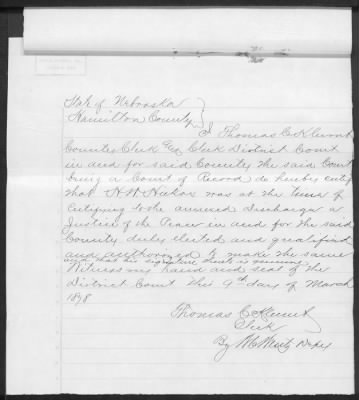 State of Nebraska }
Hamilton County }
I Thomas C Klumb
County Clerk Exo Clerk District Court
in and for said County the said Court
being a Court of Record do hereby certify
that H W was at the time of
Certifying to the annexed Discharge a
Justice of the Peace in and for the said
County duly elected and qualified
and authorized to make the same
and that his signature thereto is genuine.
Witness my hand and seal of the
District Court this 9th day of March
1878
Thomas C Klumb
Clerk
By